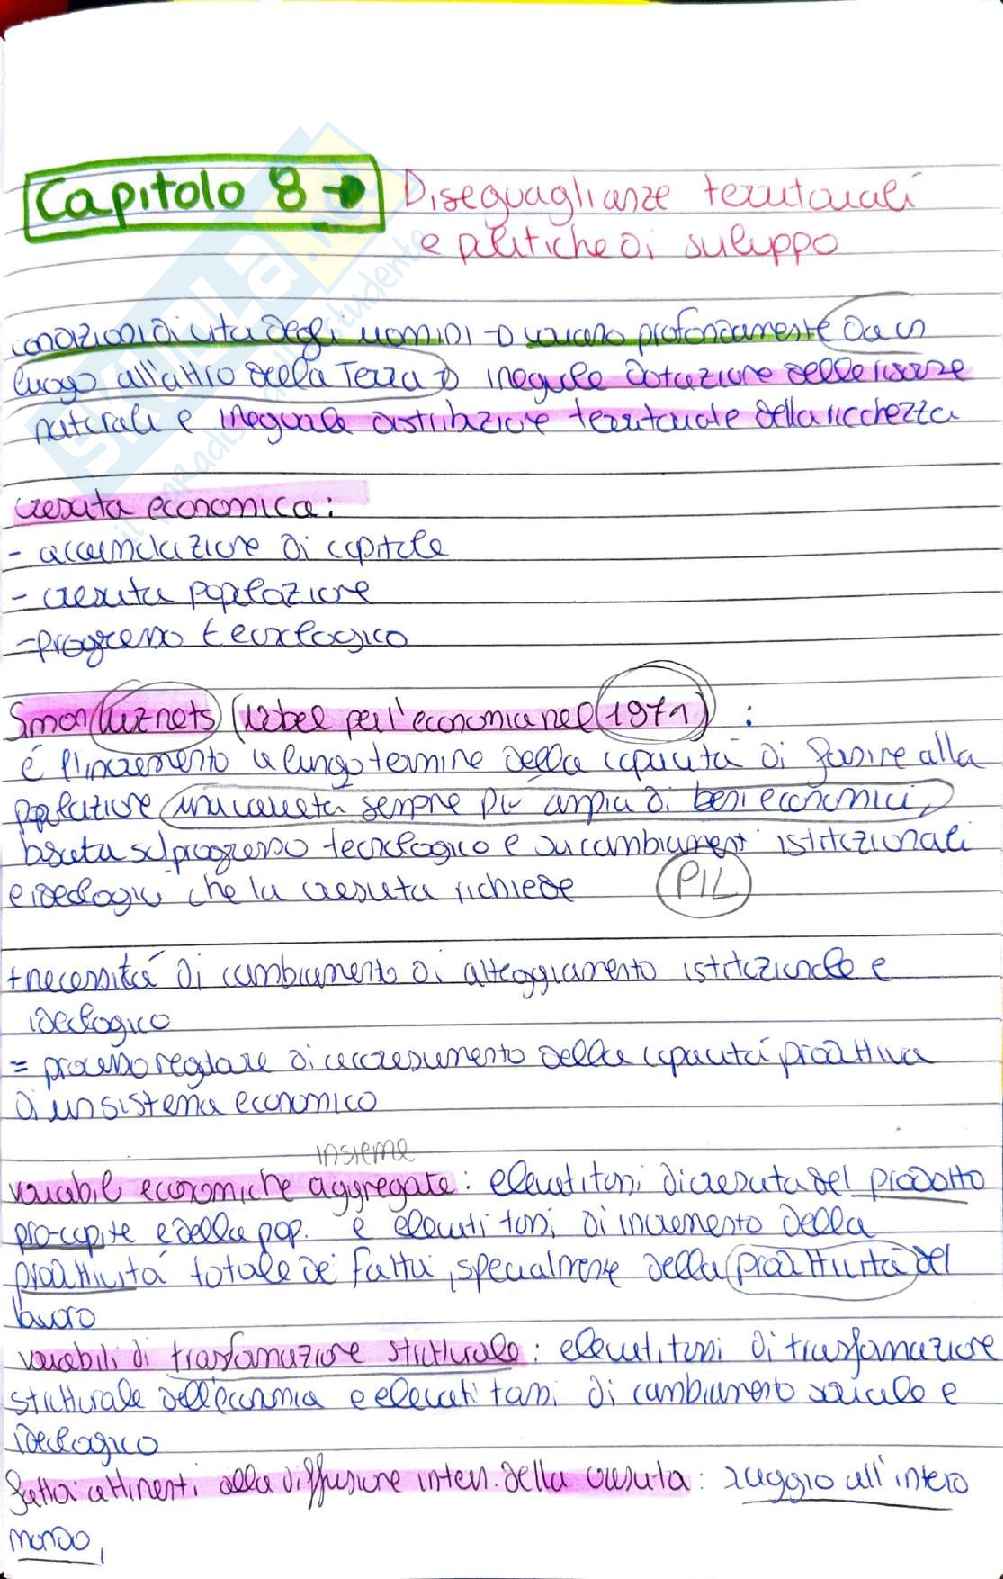 Capitolo 8 → Diseguaglianze territoriali
e politiche di sviluppo
condizioni di vita degli uomini → variano profondamente da un
luogo all'altro della Terra → ineguale dotazione delle risorse
naturali e ineguale distribuzione territoriale della ricchezza
crescita economica:
- accumulazione di capitale
- crescita popolazione
- progresso tecnologico
Simon Kuznets (Nobel per l'economia nel 1971) :
è l'incremento a lungo termine della capacità di fornire alla
popolazione una varietà sempre più ampia di beni economici,
basata sul progresso tecnologico e su cambiamenti istituzionali
e ideologici che la crescita richiede PIL
+ necessità di cambiamento di atteggiamento istituzionale e
ideologico
= processo regolare di accrescimento della capacità produttiva
di un sistema economico
insieme
variabili economiche aggregate: elevati tassi di crescita del prodotto
pro-capite e della pop. e elevati tassi di incremento della
produttività totale dei fattori, specialmente della produttività del
lavoro
variabili di trasformazione strutturale: elevati tassi di trasformazione
strutturale dell'economia e elevati tassi di cambiamento sociale e
ideologico
fattori attinenti alla diffusione intern. della crescita: raggio all'intero
mondo,